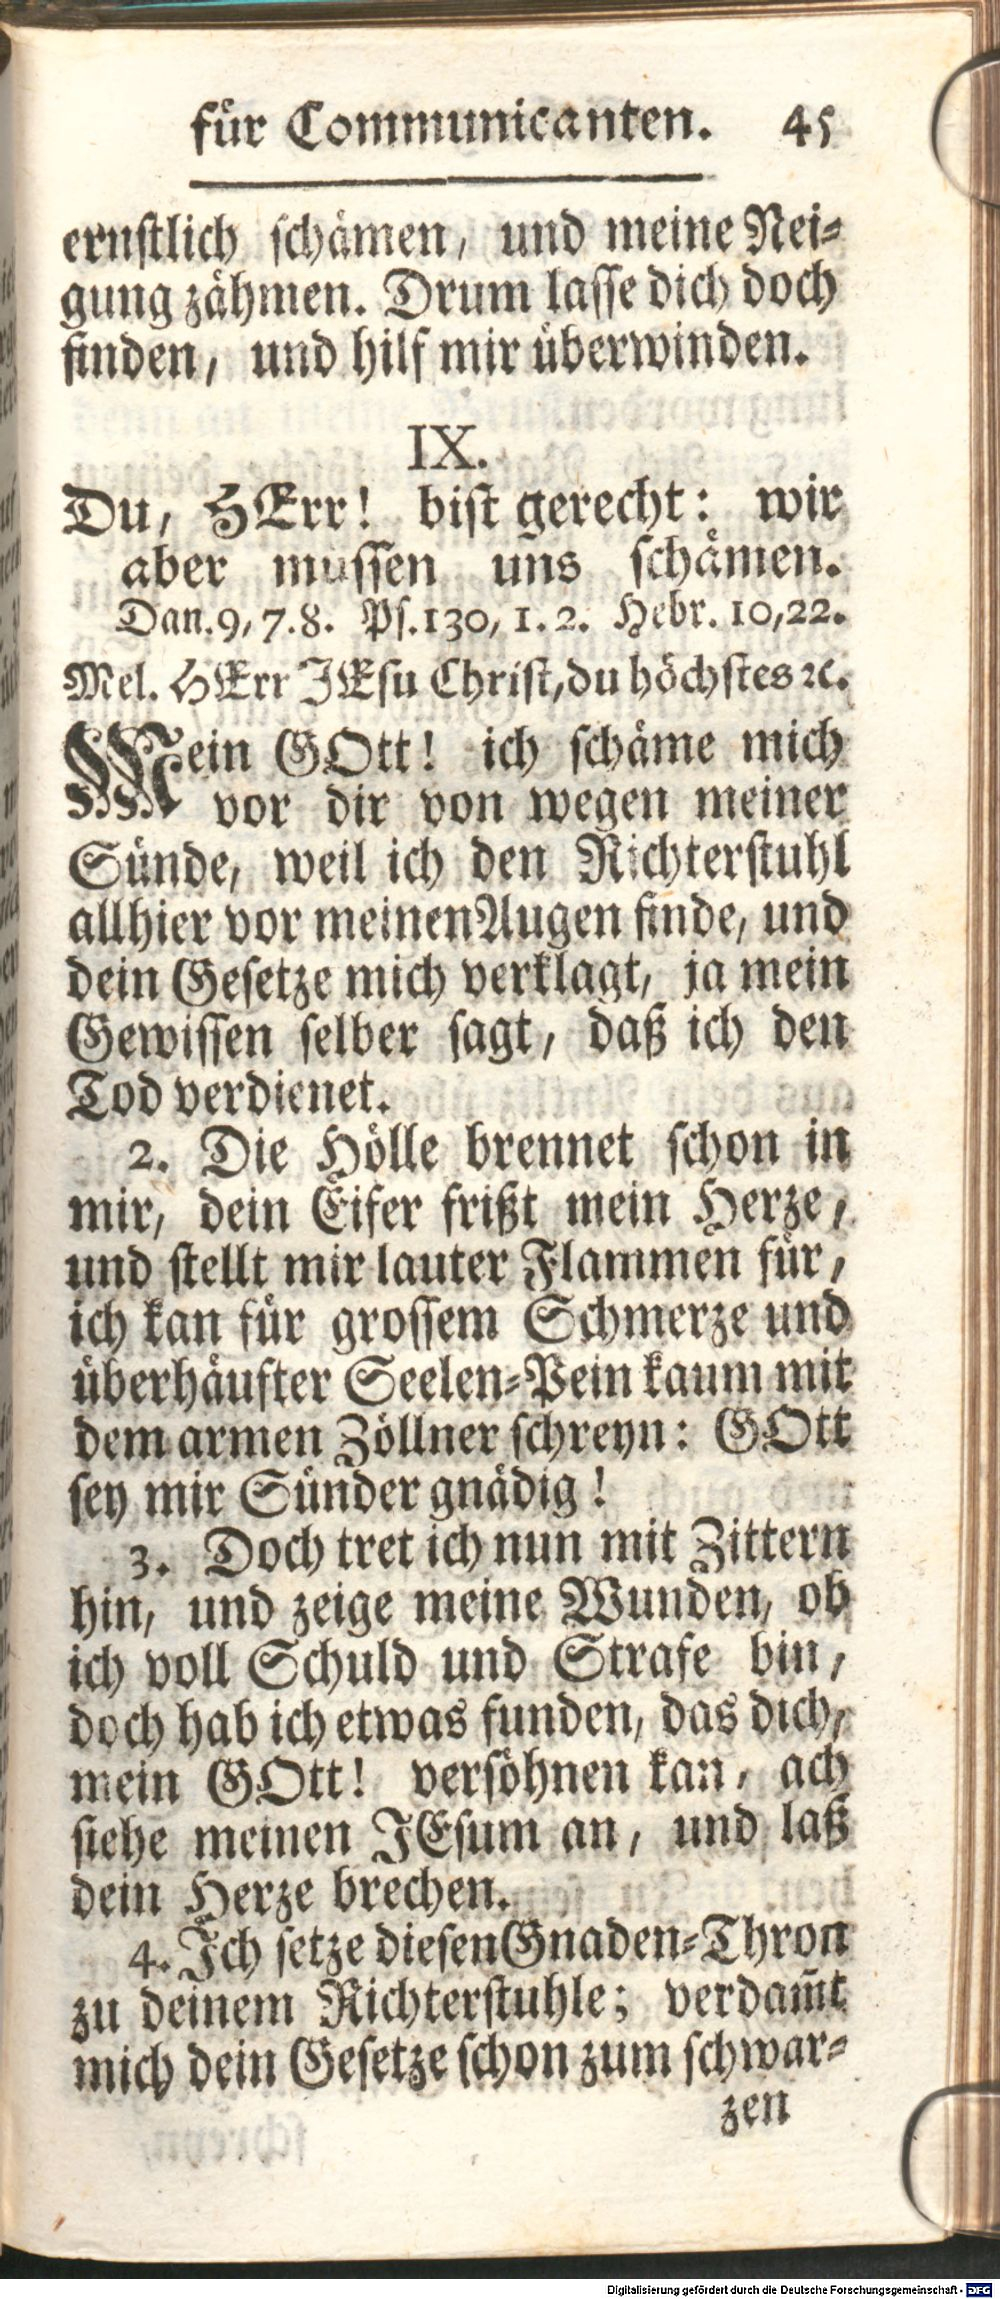 für Communicanten. 45
ernſtlich ſchämen, und meine Nei-
gung zähmen. Drum laſſe dich doch
finden, und hilf mir überwinden.
IX.
Du, HErr! biſt gerecht: wir
aber muſſen uns ſchämen.
Dan. 9, 7. 8. Pſ. 130, 1. 2. Hebr. 10, 22.
Mel. HErr JEſu Chriſt, du höchſtes ꝛc.
Mein GOtt! ich ſchäme mich
vor dir von wegen meiner
Sünde, weil ich den Richterſtuhl
allhier vor meinen Augen finde, und
dein Geſetze mich verklagt, ja mein
Gewiſſen ſelber ſagt, daß ich den
Tod verdienet.
2. Die Hölle brennet ſchon in
mir, dein Eifer frißt mein Herze,
und ſtellt mir lauter Flammen für,
ich kan für groſſem Schmerze und
überhäufter Seelen-Pein kaum mit
dem armen Zöllner ſchreyn: GOtt
ſey mir Sünder gnädig!
3. Doch tret ich nun mit Zittern
hin, und zeige meine Wunden, ob
ich voll Schuld und Strafe bin,
doch hab ich etwas funden, das dich,
mein GOtt! verſöhnen kan, ach
ſiehe meinen JEſum an, und laß
dein Herze brechen.
4. Ich ſetze dieſen Gnaden-Thron
zu deinem Richterſtuhle; verdam̃t
mich dein Geſetze ſchon zum ſchwar-
zen
Digitalisierung gefördert durch die Deutsche Forschungsgemeinschaft - DFG